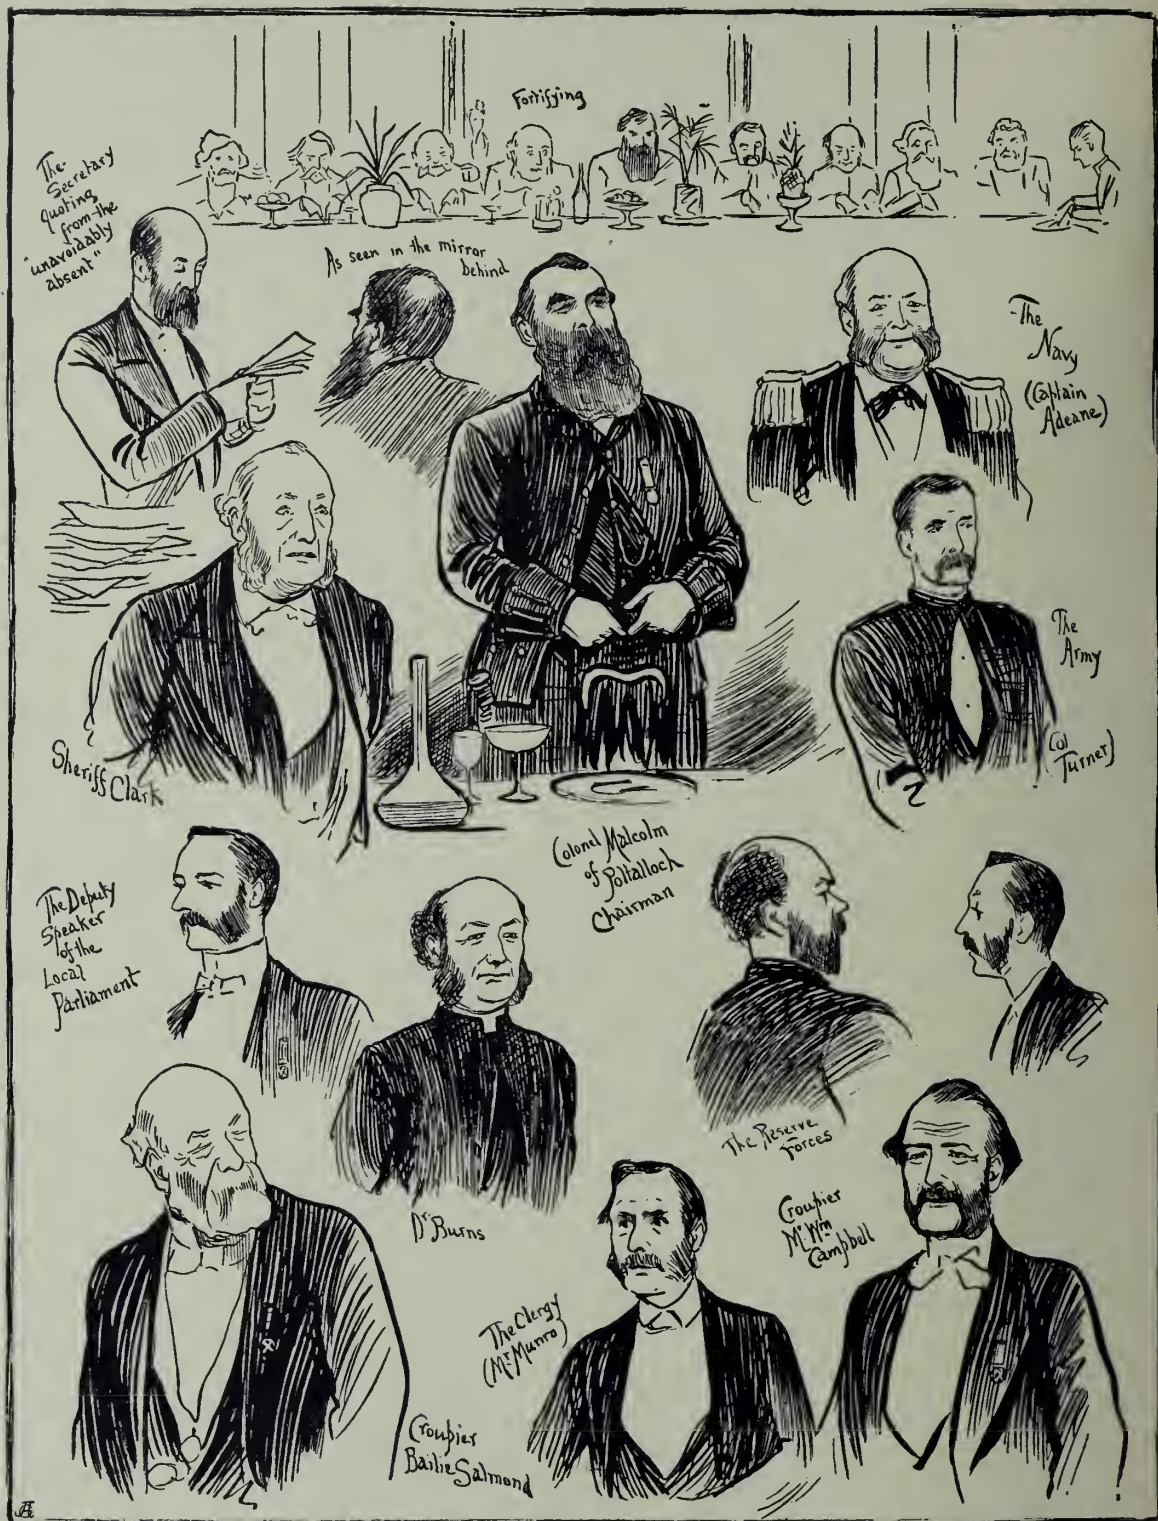 Fortifying
The
Secretary
quoting
from the
"unavoidably
absent"
As seen in the mirror
behind
The
Navy
(Captain
Adeane)
The
Army
Col
Turner)
Sheriff Clark
Colonel Malcolm
of Poltalloch
Chairman
The Deputy
Speaker
of the
Local
Parliament
Dr Burns
The Reserve
Forces
Croupier
Mr Wm
Campbell
The Clergy
(Mr Munro)
Croupier
Bailie Salmond